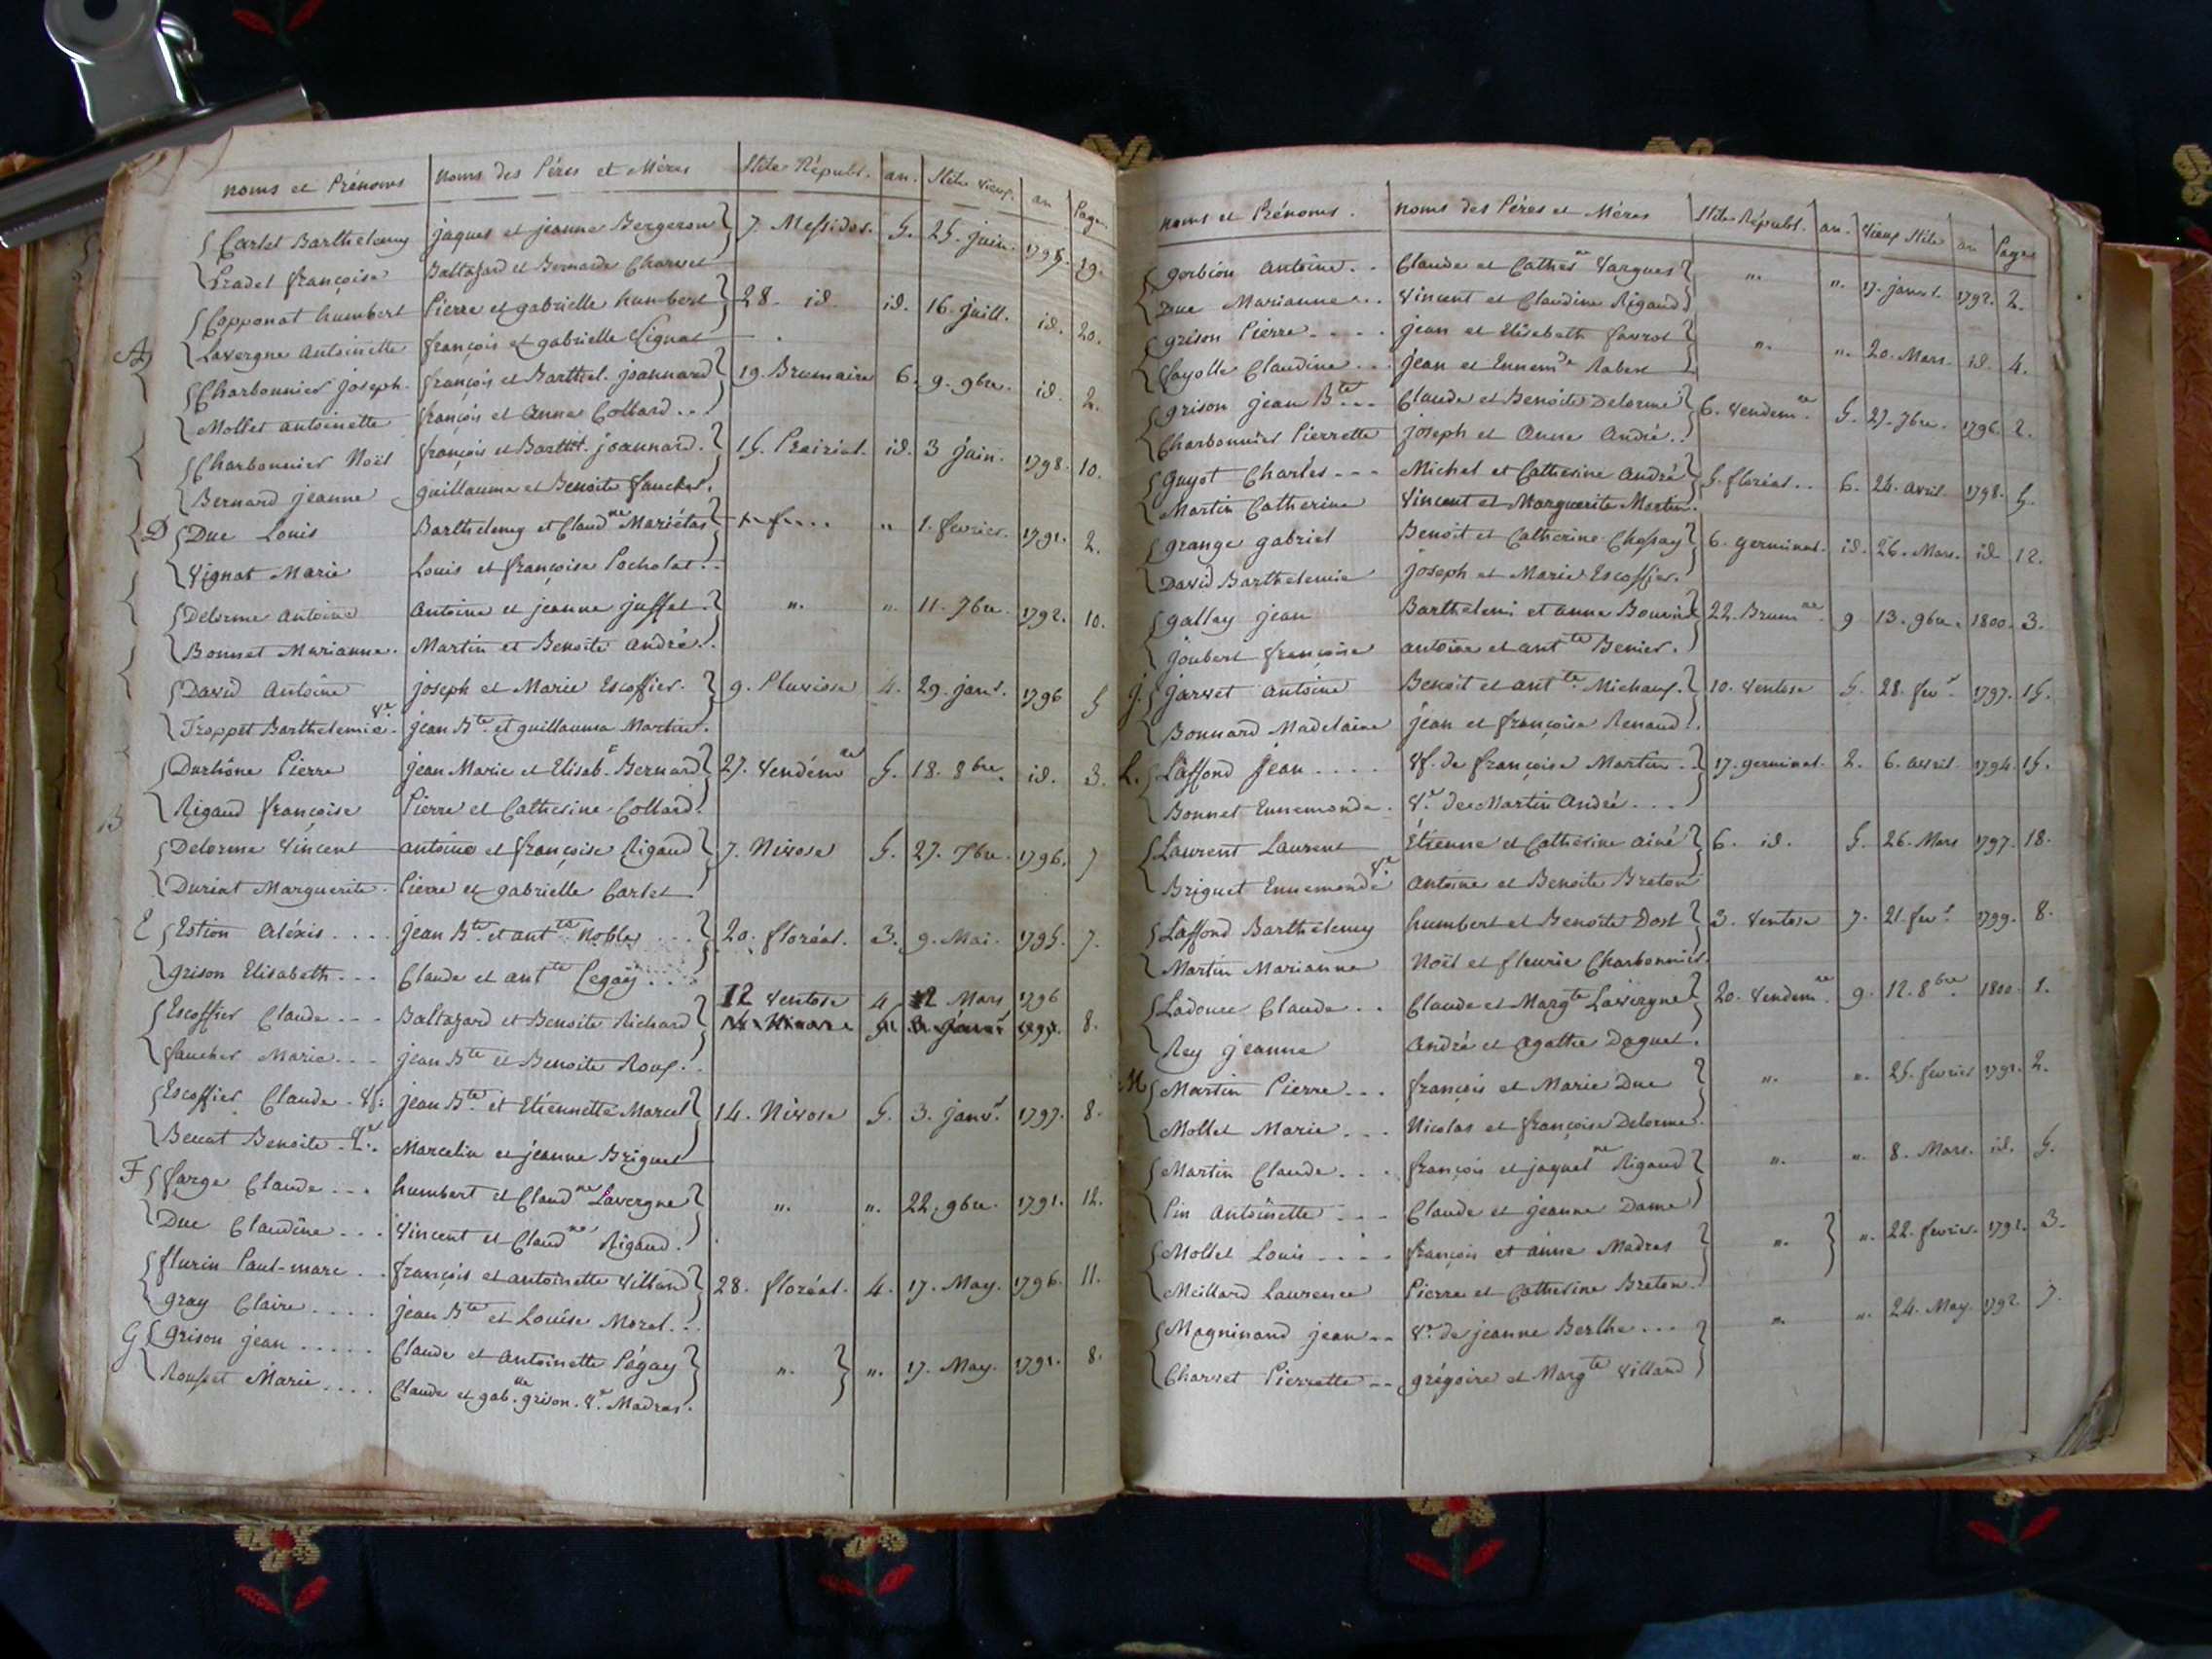 noms et Prénoms noms des Péres et Méres Stile Républ. an. Stile vieux. an Page
Carlet Barthelemy jaques et jeanne Bergeron 7. Messidor. 5. 25. juin. 1797. 19.
Pradel françoise Baltazard et Bernarde Charvet
Copponat humbert Pierre et gabrielle humbert 28. id. id. 16. juill. id. 20.
Lavergne Antoinette françois et gabrielle Vignat
Charbonnier joseph. françois et Barthel. joannard 19. Brumaire 6. 9. 9bre. id. 2.
Mollet antoinette françois et Anne Collard..
Charbonnier Noël françois et Barthel. joannard. 15. Prairial. id. 3 juin. 1798. 10.
Bernard jeanne guillaume et Benoite faucher.
D Duc Louis Barthelemy et Claud ne Mariétas " 1. fevrier. 1791. 2.
Vignat Marie Louis et françoise Pocholat..
Delorme Antoine Antoine et jeanne juffet. " " 11. 7bre. 1792. 10.
Bonnet Marianne. Martin et Benoite André.
David Antoine joseph et Marie Escoffier. 9. Pluviose 4. 29. janv. 1796 5
Troppet Barthelemie. Ve jean Bte. et guillauma Martin.
Durhône Pierre jean Marie et Elisab. Bernard 27. Vendém re 5. 18. 8bre. id. 3.
Rigaud françoise Pierre et Catherine Collard.
Delorme Vincent antoine et françoise Rigaud 7. Nivose 5. 27. 7bre. 1796. 7
Duriat Marguerite. Pierre et gabrielle Carlet
E Estion Aléxis.... jean Bte. et ant te Noblex... 20. floréal. 3. 9. Mai. 1795. 7.
grison Elisabeth... Claude et ant te Pegay...
12 Ventose 4 12 Mars 1796
Escoffier Claude... Baltazard et Benoite Richard 8.
faucher Marie... jean Bte et Benoite Roux..
Escoffier Claude. Vf: jean Bte. et Etiennette Marcel 14. Nivose 5. 3. janvr. 1797. 8.
Beccat Benoite. Ve. Marcelin et jeanne Briguet
F farge Claude... humbert et Claud ne Lavergne " ". 22. 9bre. 1791. 12.
Duc Claudine... Vincent et Claud ne Rigaud.
flurin Paul-marc.. françois et antoinette Villard 28. floréal. 4. 17. May. 1796. 11.
gray Claire.... jean Bte et Louise Morel..
G grison jean..... Claude et Antoinette Pégay " ". 17. May. 1791. 8.
Rousset Marie.... Claude et gab. lle grison. Ve. Madras.
noms et Prénoms. noms des Péres et Méres Stile Républ. an. Vieux Stile an Page
gorbion Antoine.. Claude et Cather ne Vargues " " 17. janvr. 1792. 2.
Duc Marianne... Vincent et Claudine Rigaud
grison Pierre.... jean et Elisabeth favrot " " 20. Mars. id. 4.
fayolle Claudine... jean et Ennem de Robert
grison jean Bte... Claude et Benoite Delorme 6. Vendem re 5. 27. 7bre. 1796. 2.
Charbonnier Pierrette joseph et Anne André..
guyot Charles --- Michel et Catherine André 5. floréal.. 6. 24. avril. 1798. 5.
Martin Catherine Vincent et Marguerite Martin.
grange gabriel Benoit et Catherine Chassay 6. germinal. id. 26. Mars. id. 12.
David Barthelemie joseph et Marie Escoffier.
gallay jean Barthelemi et anne Bouvier 22. Brum re. 9 13. 9bre. 1800. 3.
joubert françoise antoine et ant te Benier.
J. jarvet Antoine Benoît et ant te. Michaux. 10. Ventose 5. 28. fevr. 1797. 15.
Bonnard Madelaine jean et françoise Renaud.
L. Laffond jean.... Vf. de françoise Martin.. 17. germinal. 2. 6. avril 1794. 15.
Bonnet Ennemonde. Ve. de Martin André....
Laurent Laurent Etienne et Cathérine Ainé 6. id. 5. 26. Mars 1797. 18.
Briguet Ennemonde Ve Antoine et Benoite Breton
Laffond Barthelemy humbert et Benoîte Dost 3. Ventose 7. 21. fevr. 1799. 8.
Martin Marianne Noël et fleurie Charbonnier.
Ladouce Claude.. Claude et Margte Lavergne 20. Vendem re. 9. 12. 8bre. 1800. 1.
Rey jeanne André et Agathe Daguet.
M Martin Pierre... françois et Marie Duc " " 25. fevrier 1791. 2.
Mollet Marie... Nicolas et françoise Delorme.
Martin Claude... françois et jaquel ne Rigaud " " 8. Mars. id. 5.
Pin Antoinette... Claude et jeanne Dame
Mollet Louis.... françois et anne Madras " " 22. fevrier. 1791. 3.
Meillard Laurence Pierre et Catherine Breton.
Magninand jean -- Ve. de jeanne Berthe... " " 24. May. 1792. 7.
Charvet Pierrette -- grégoire et Margte Villard